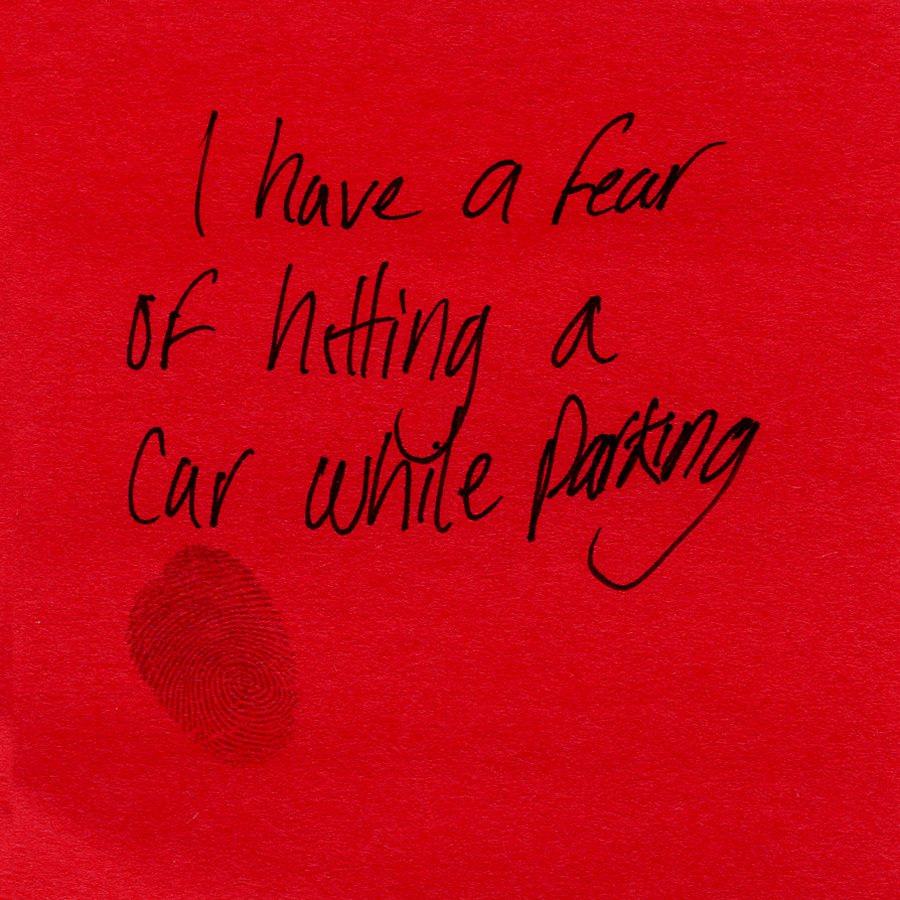 I have a fear
of hitting a
Car while Parking